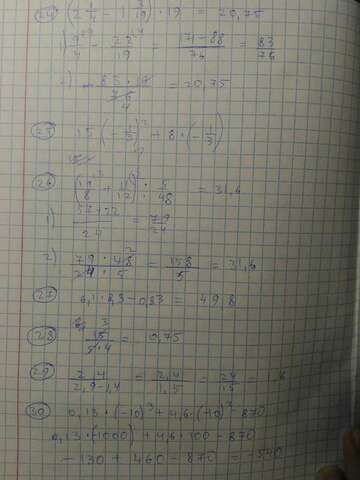 24 (2 1/4 - 1 3/19) · 19 = 20,75
1) 9/4 - 22/19 = 171-88/76 = 83/76
2) 83 · 19 / 76 4 = 20,75
25 15 (-1/3)² + 8 · (-1/3)
26 (19/8 + 11/12) : 5/48 = 31,6
1) 57+22/24 = 79/24
2) 79 · 48/24 · 5 = 158/5 = 31,6
27 6,1 · 8,3 - 0,83 = 49,8
28 15/5·4 = 0,75
29 2,4/2,9-1,4 = 2,4/1,5 = 24/15 =
30 0,13 · (-10)³ + 4,6 · (-10)² - 870
0,13 · (1000) + 4,6 · 100 - 870
-130 + 460 - 870 = -540